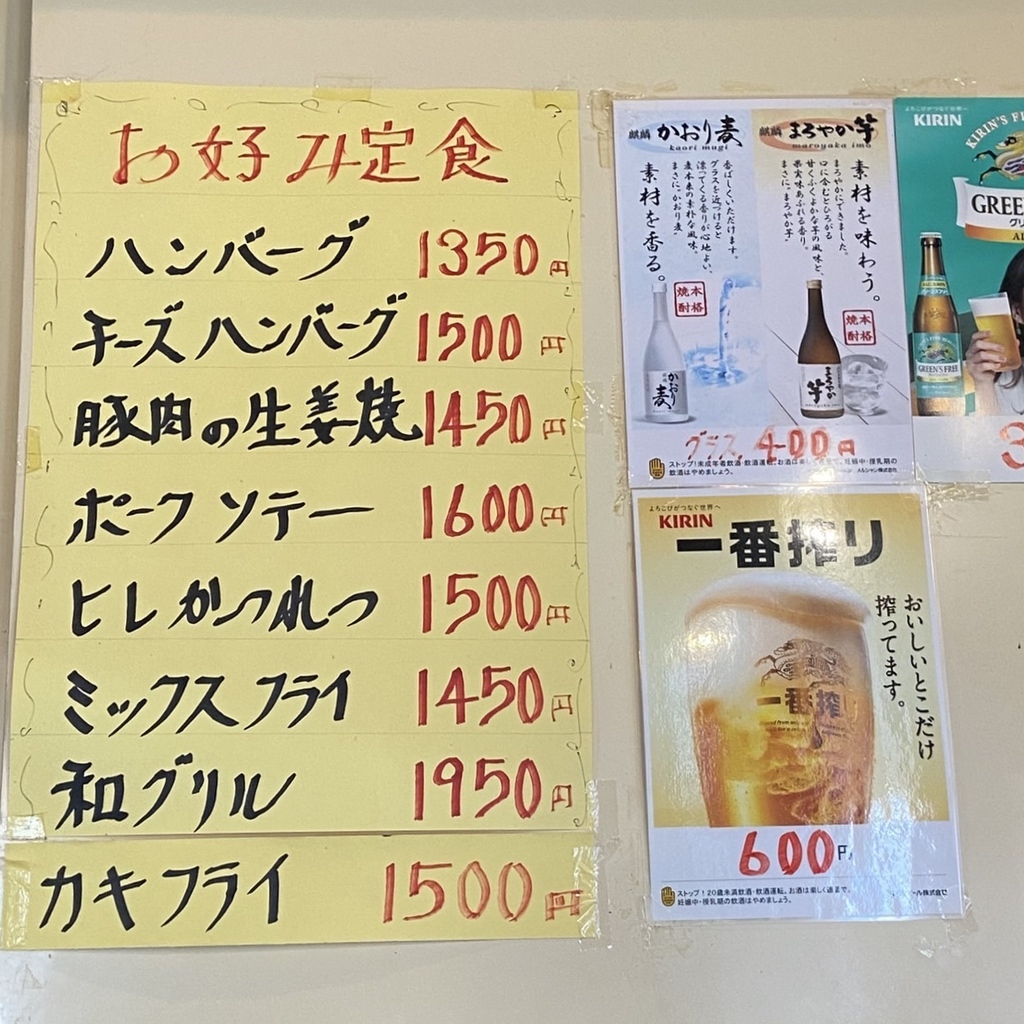 お好み定食
ハンバーグ 1350円
チーズハンバーグ 1500円
豚肉の生姜焼 1450円
ポークソテー 1600円
ヒレかつれつ 1500円
ミックスフライ 1450円
和グリル 1950円
カキフライ 1500円
麒麟 かおり麦
kaori mugi
素材を香る。
香ばしくいただけます。
グラスを近づけると
漂ってくる香りが心地よい、
麦本来の素朴な風味。
まさに“かおり麦”
本格焼酎
かおり麦
麒麟 まろやか芋
maroyaka imo
素材を味わう。
まろやかにできました。
口に含むとひろがる
甘くふくよかな芋の風味と、
果実味あふれる香り。
まさに“まろやか芋”
本格焼酎
まろやか芋
グラス 400円
ストップ!未成年者飲酒・飲酒運転。お酒は楽しく適量で。妊娠中・授乳期の
飲酒はやめましょう。
メルシャン株式会社
よろこびがつなぐ世界へ
KIRIN
KIRIN'S
GREEN
GREEN'S FREE
3
よろこびがつなぐ世界へ
KIRIN
一番搾り
おいしいとこだけ
搾ってます。
一番搾
600円
ストップ!20歳未満飲酒・飲酒運転。お酒は楽しく適量で。
妊娠中・授乳期の飲酒はやめましょう。
ール株式会社